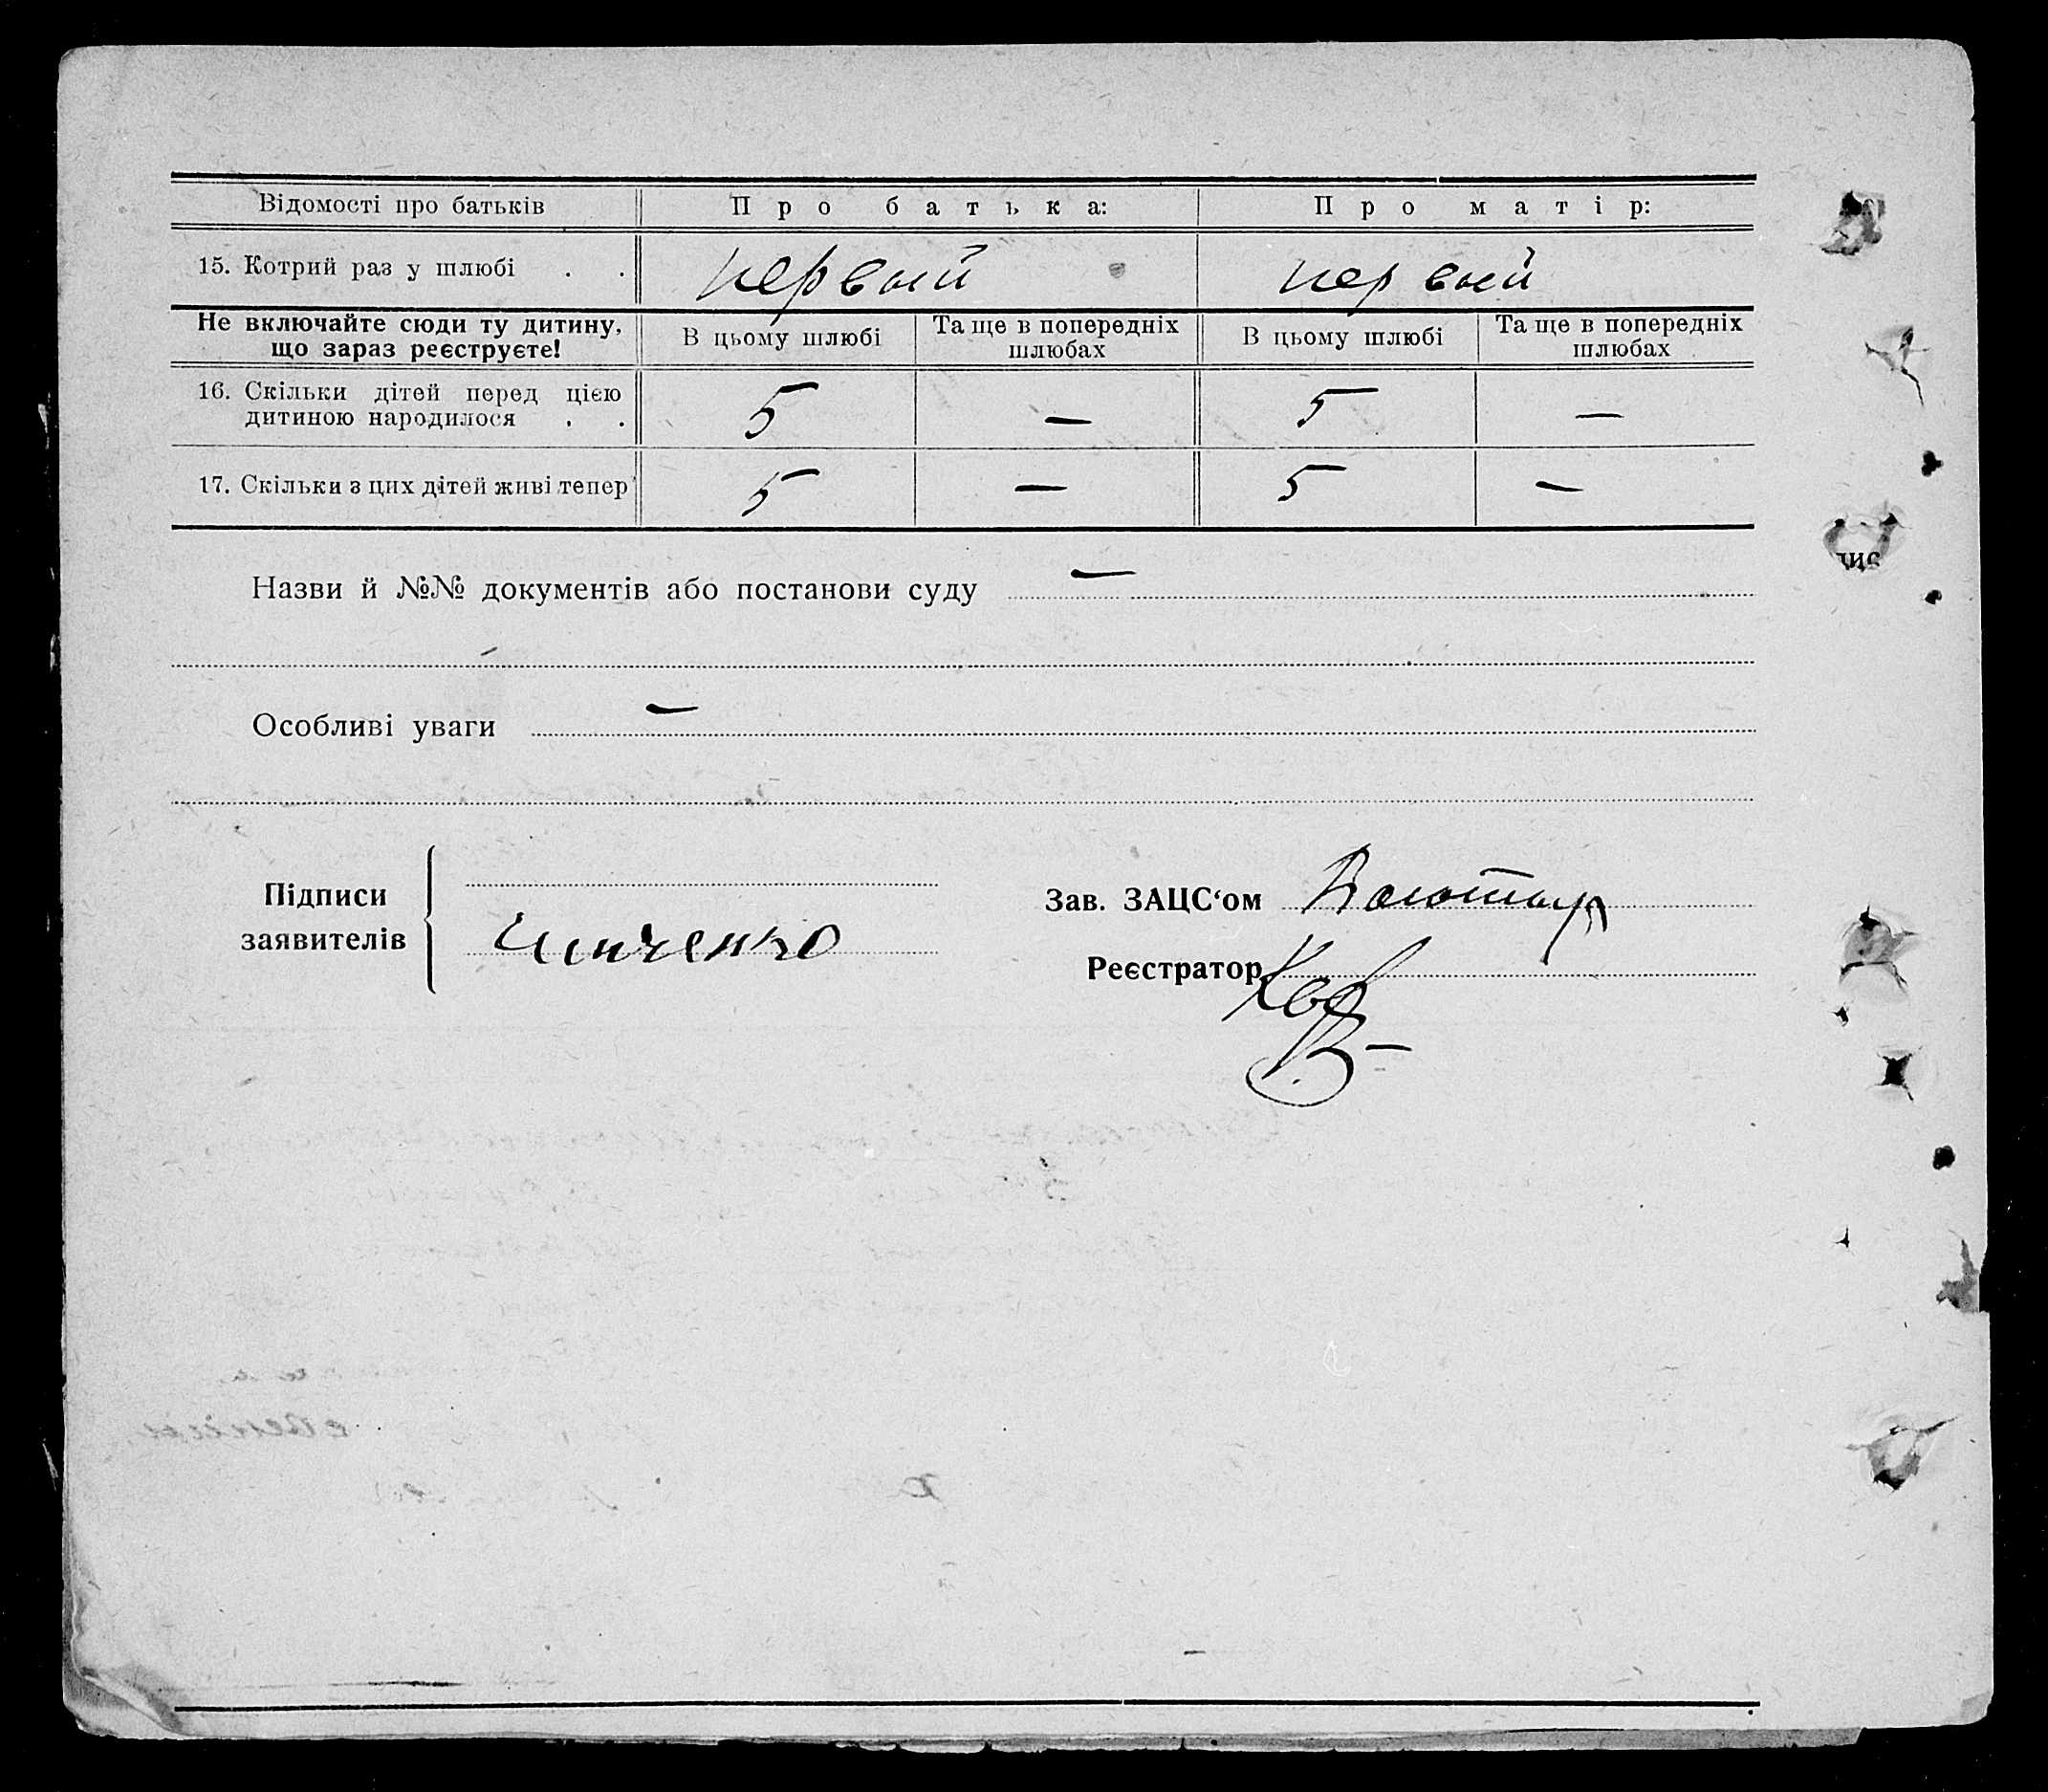 Відомості про батьків Про батька: Про матір:
15. Котрий раз у шлюбі . . первый первый
Не включайте сюди ту дитину, що зараз реєструєте! В цьому шлюбі Та ще в попередніх шлюбах В цьому шлюбі Та ще в попередніх шлюбах
16. Скільки дітей перед цією
дитиною народилося . . 5 — 5 —
17. Скільки з цих дітей живі тепер 5 — 5 —
Назви й №№ документів або постанови суду —
Особливі уваги —
Підписи
заявителів
Зав. ЗАЦС‘ом
Реєстратор